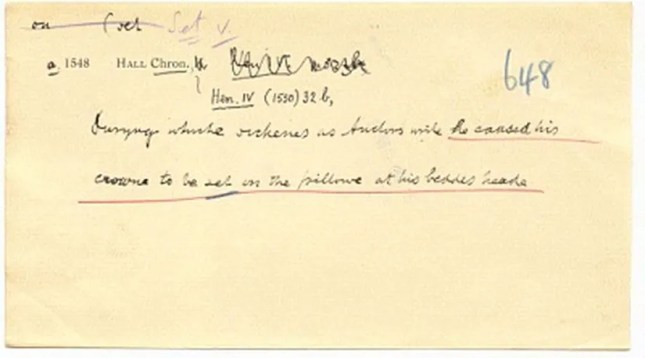 on (set Set v.
a 1548 HALL Chron.,
648
Hen. IV (1550) 32 b,
Duryng whiche sickenes as Auctors write he caused his
crowne to be set on the pillowe at his beddes heade